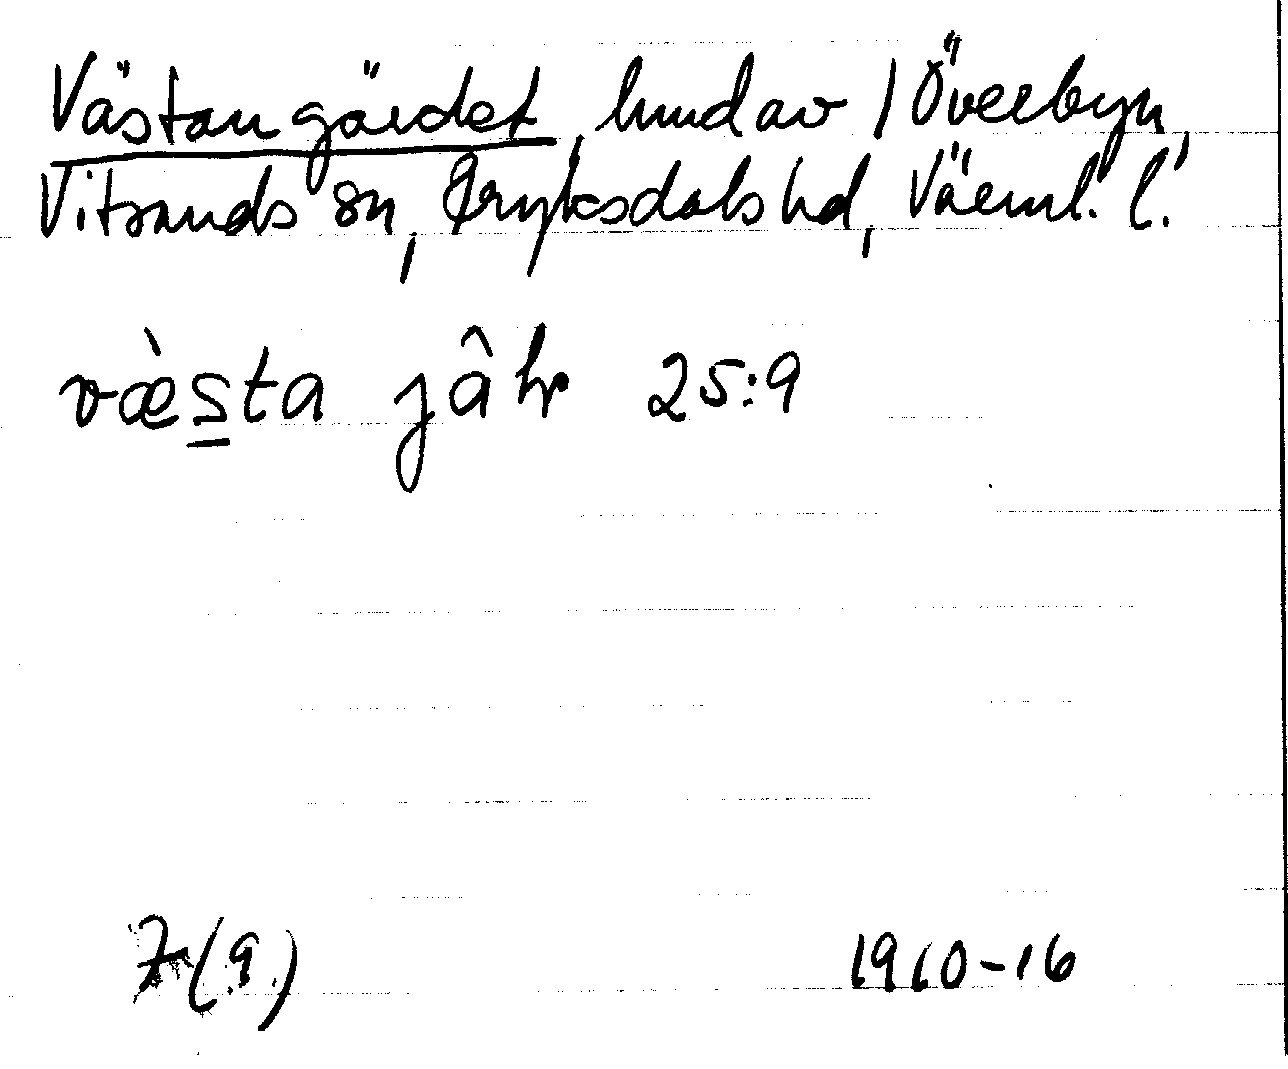 Västangärdet, hmd av 1 Överbyn,
Vitsands sn, Fryksdals hd, Värml. l.
væ̀sta jâḷr 25:9
7(9.)
1910-16